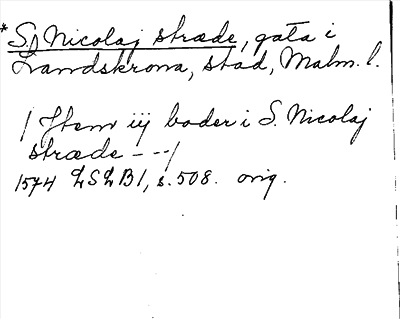 * S. Nicolaj stræde, gata i
Landskrona, stad, Malm. l.
/ Jtem iij boder i S. Nicolaj
stræde - - - /
1574 LSLB1, s. 508. orig.